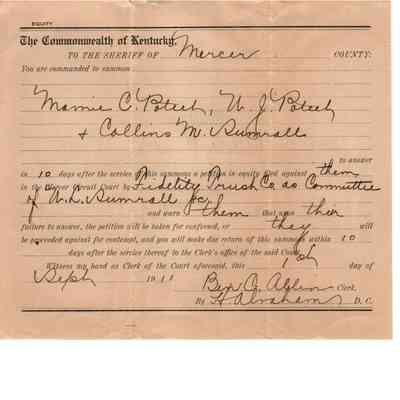 EQUITY
The Commonwealth of Kentucky,
TO THE SHERIFF OF Mercer COUNTY:
You are commanded to summon
Mamie C. Poteet, W. J. Poteet
& Collins M. Sumrall
to answer
in 10 days after the service of this summons a petition in equity filed against them
in the Mercer Circuit Court by Fidelity Trust Co. as Committee
of W. L. Sumrall &c.
and warn them that upon their
failure to answer, the petition will be taken for confessed, or they will
be proceeded against for contempt, and you will make due return of this summons within 10
days after the service thereof to the Clerk's office of the said Court.
Witness my hand as Clerk of the Court aforesaid, this day of
Sept 191
Ben C. Allin Clerk.
By H Abraham D. C.